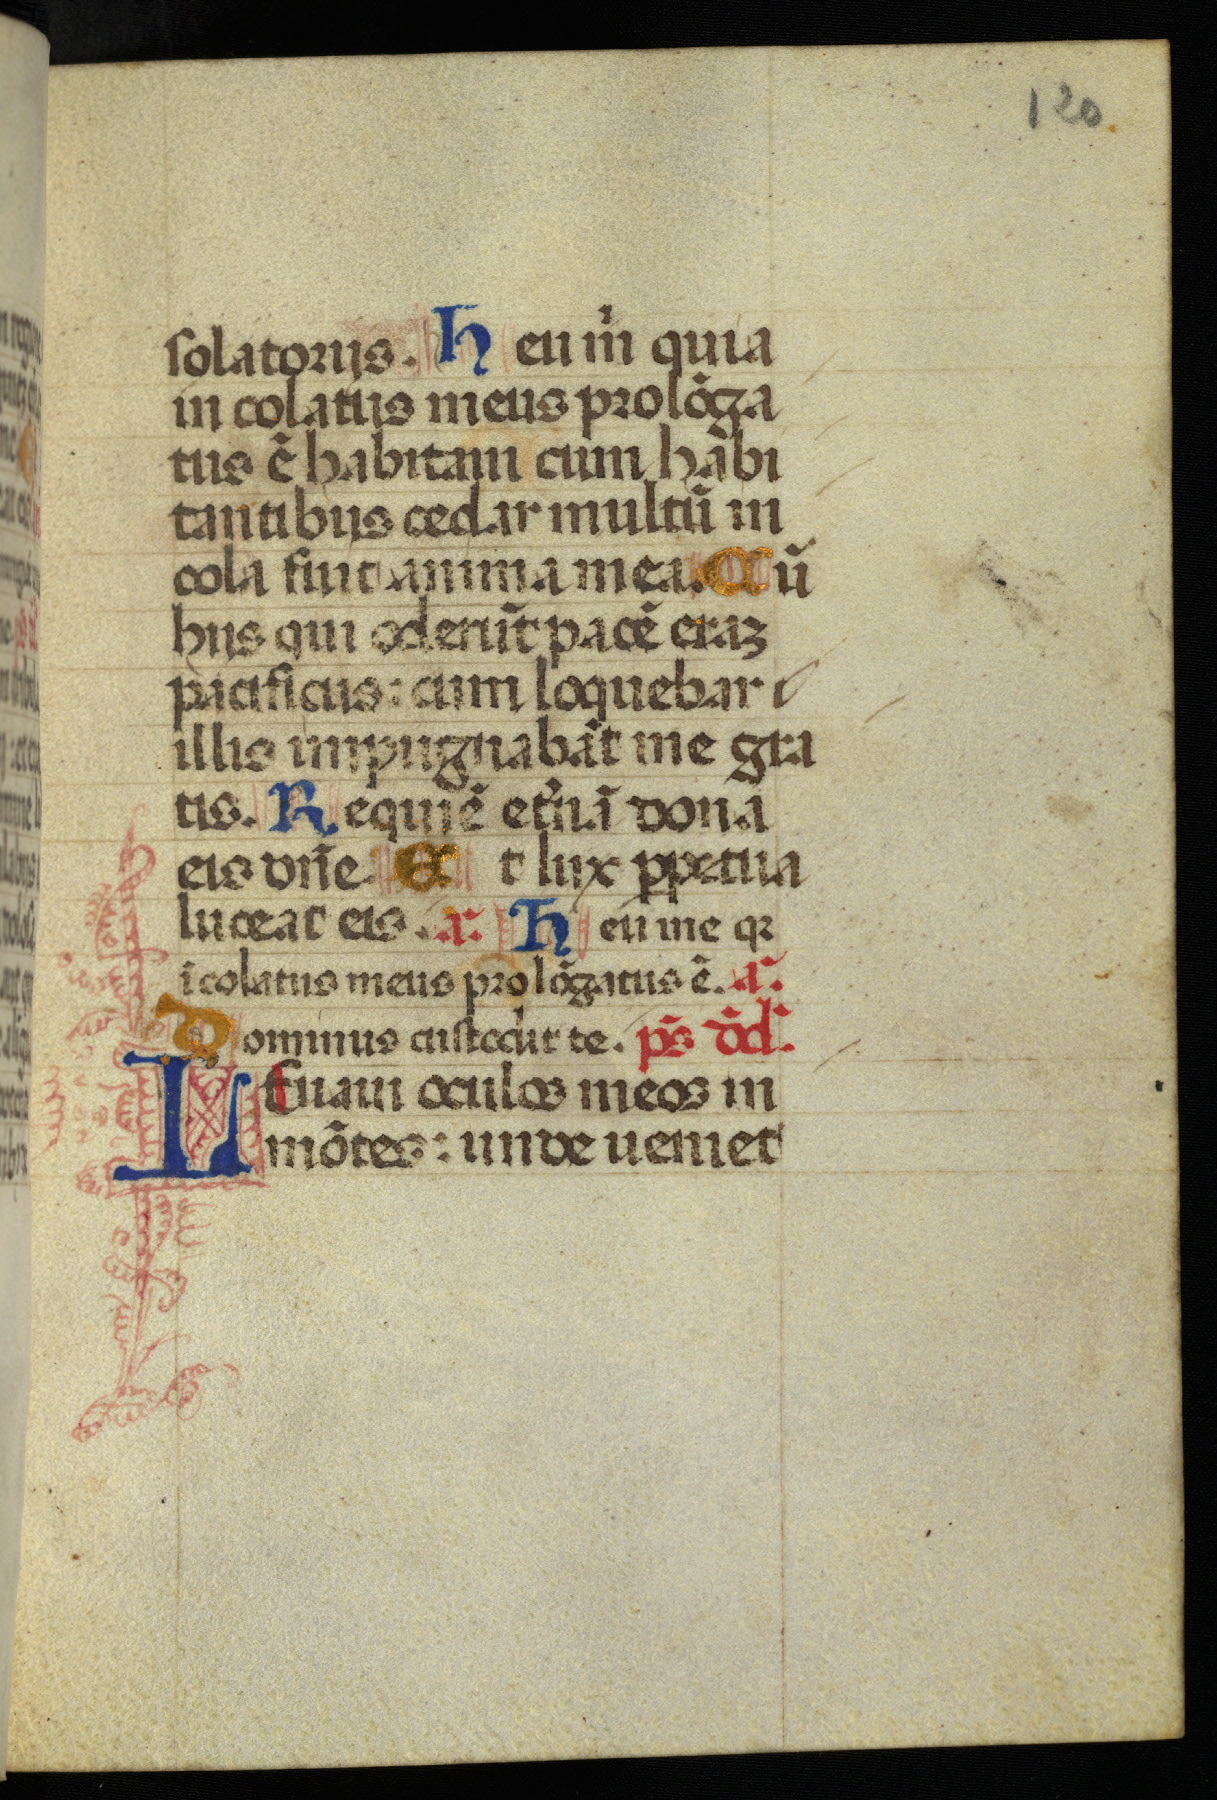 120
solatorijs. Heu m̃ quia
in colatus meus prolõga
tus ẽ habitaui cum habi
tantibus cedar multũ in
cola fuit anima mea. Cũ
hijs qui oderũt pacẽ eraʒ
pacificus: cum loquebar
illis impugnabãt me gra
tis. Requiẽ et̃nã dona
eis dñe. Et lux ꝑpetua
luceat eis. a. Heu me qꝛ
ĩcolatus meus prolõgatus ẽ. a.
Dominus custodit te. p̃s d̃d.
Leuaui oculos meos in
mõtes: unde ueniet